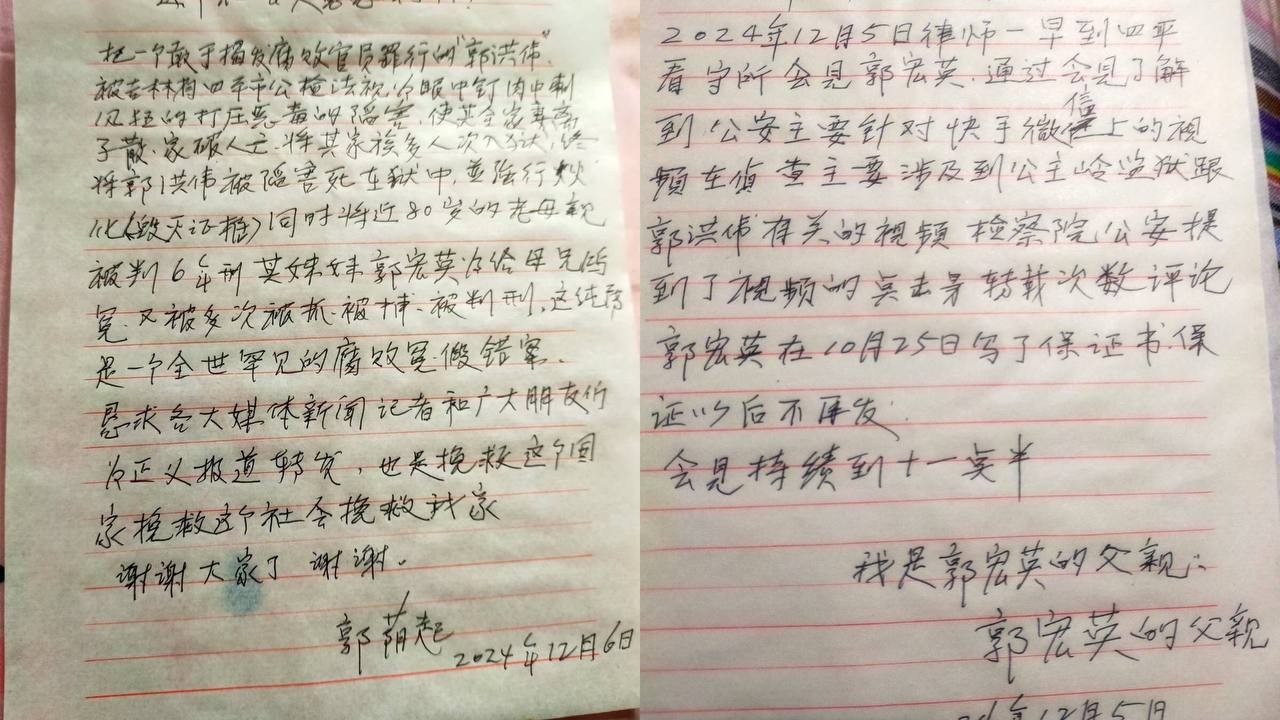 把一个敢于揭发腐败官员罪行的"郭洪伟"
被吉林省四平市公检法视为眼中钉肉中刺
疯狂的打压恶毒的陷害,使其全家妻离
子散、家破人亡、将其家族多人次入狱,终
将郭洪伟被陷害死在狱中,並强行火
化(毁灭证据)同时将近80岁的老母亲
被判6年刑其妹妹郭宏英为给母兄鸣
冤、又被多次被抓、被捕、被判刑,这纯
是一个全世罕见的腐败冤假错案、
恳求各大媒体新闻记者和广大朋友们
为正义报道转发,也是挽救这个国
家挽救这个社会挽救我家
谢谢大家了 谢谢。
郭荫起
2024年12月6日
2024年12月5日律师一早到四平
看守所会见郭宏英,通过会见了解
到,公安主要针对快手微信上的视
频在侦查主要涉及到公主岭监狱跟
郭洪伟有关的视频 检察院,公安提
到了视频的点击量转载次数评论
郭宏英在10月25日写了保证书,保
证以后不再发.
会见持续到十一点半
我是郭宏英的父亲:
郭宏英的父亲
年12月5日